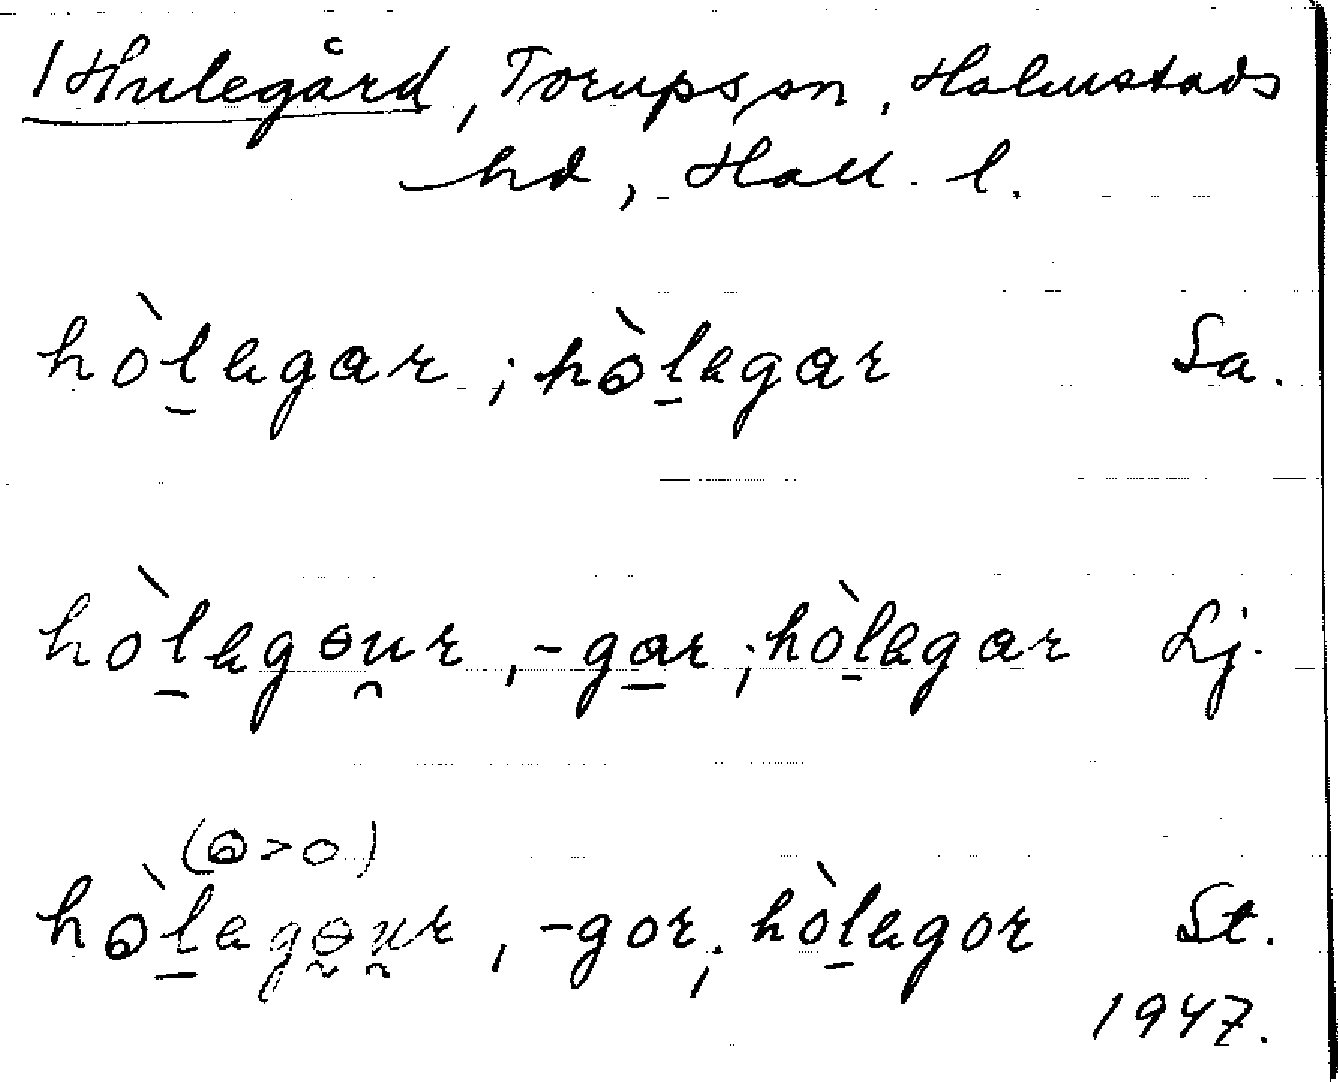 1 Hulegård, Torups sn, Halmstads
hd, Hall. l.
hòl̲agar ; hòl̲agar Sa.
hòl̲agɵu̯r , -ga̲r ; hòl̲agar Lj.
(ѳ>o)
hòl̲agɵ̰u̯r , -gor ; hòl̲agor St.
1947.